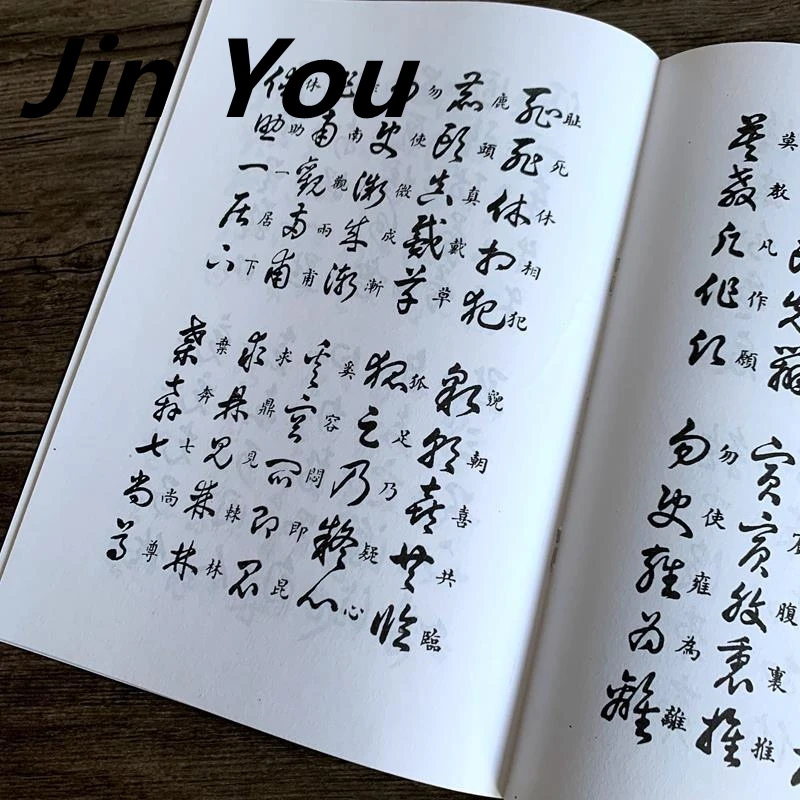 Jin You
莫教凡作願
腹裏推
勿使雍為離
耻死休相犯
鹿頭真戴草
勿使微成漸
南觀雨甫
休助一居下
朝喜共臨
狐足乃疑心
奚容悶即昆
求鼎見棘林
棄奔七尚尊